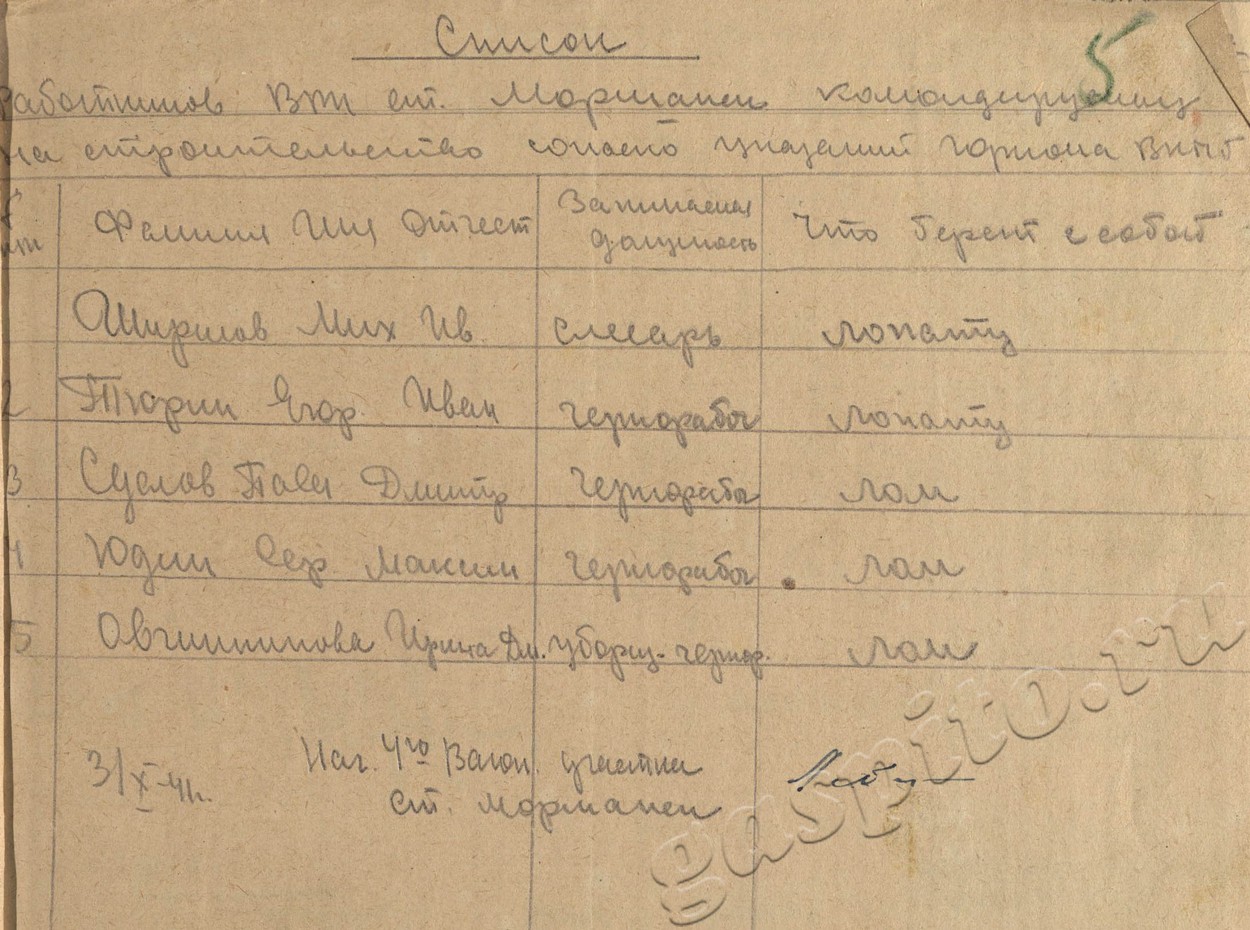 Список
5
работников ВРП ст. Моршанск командируемых
на строительство согласно указаний горкома ВКПб
Фамилия Имя Отчест Занимаемая должность Что берет с собой
Ширшов Мих Ив. слесарь лопату
2 Тюрин Егор. Иван чернорабоч лопату
3 Суслов Павел Дмитр чернорабоч лом
4 Юдин Сер. Максим чернорабоч лом
5 Овчинникова Ирина Дм. уборщ-чернор. лом
3/X-41г. Нач. 4го Вагон участка
ст. Моршанск
gaspito.ru